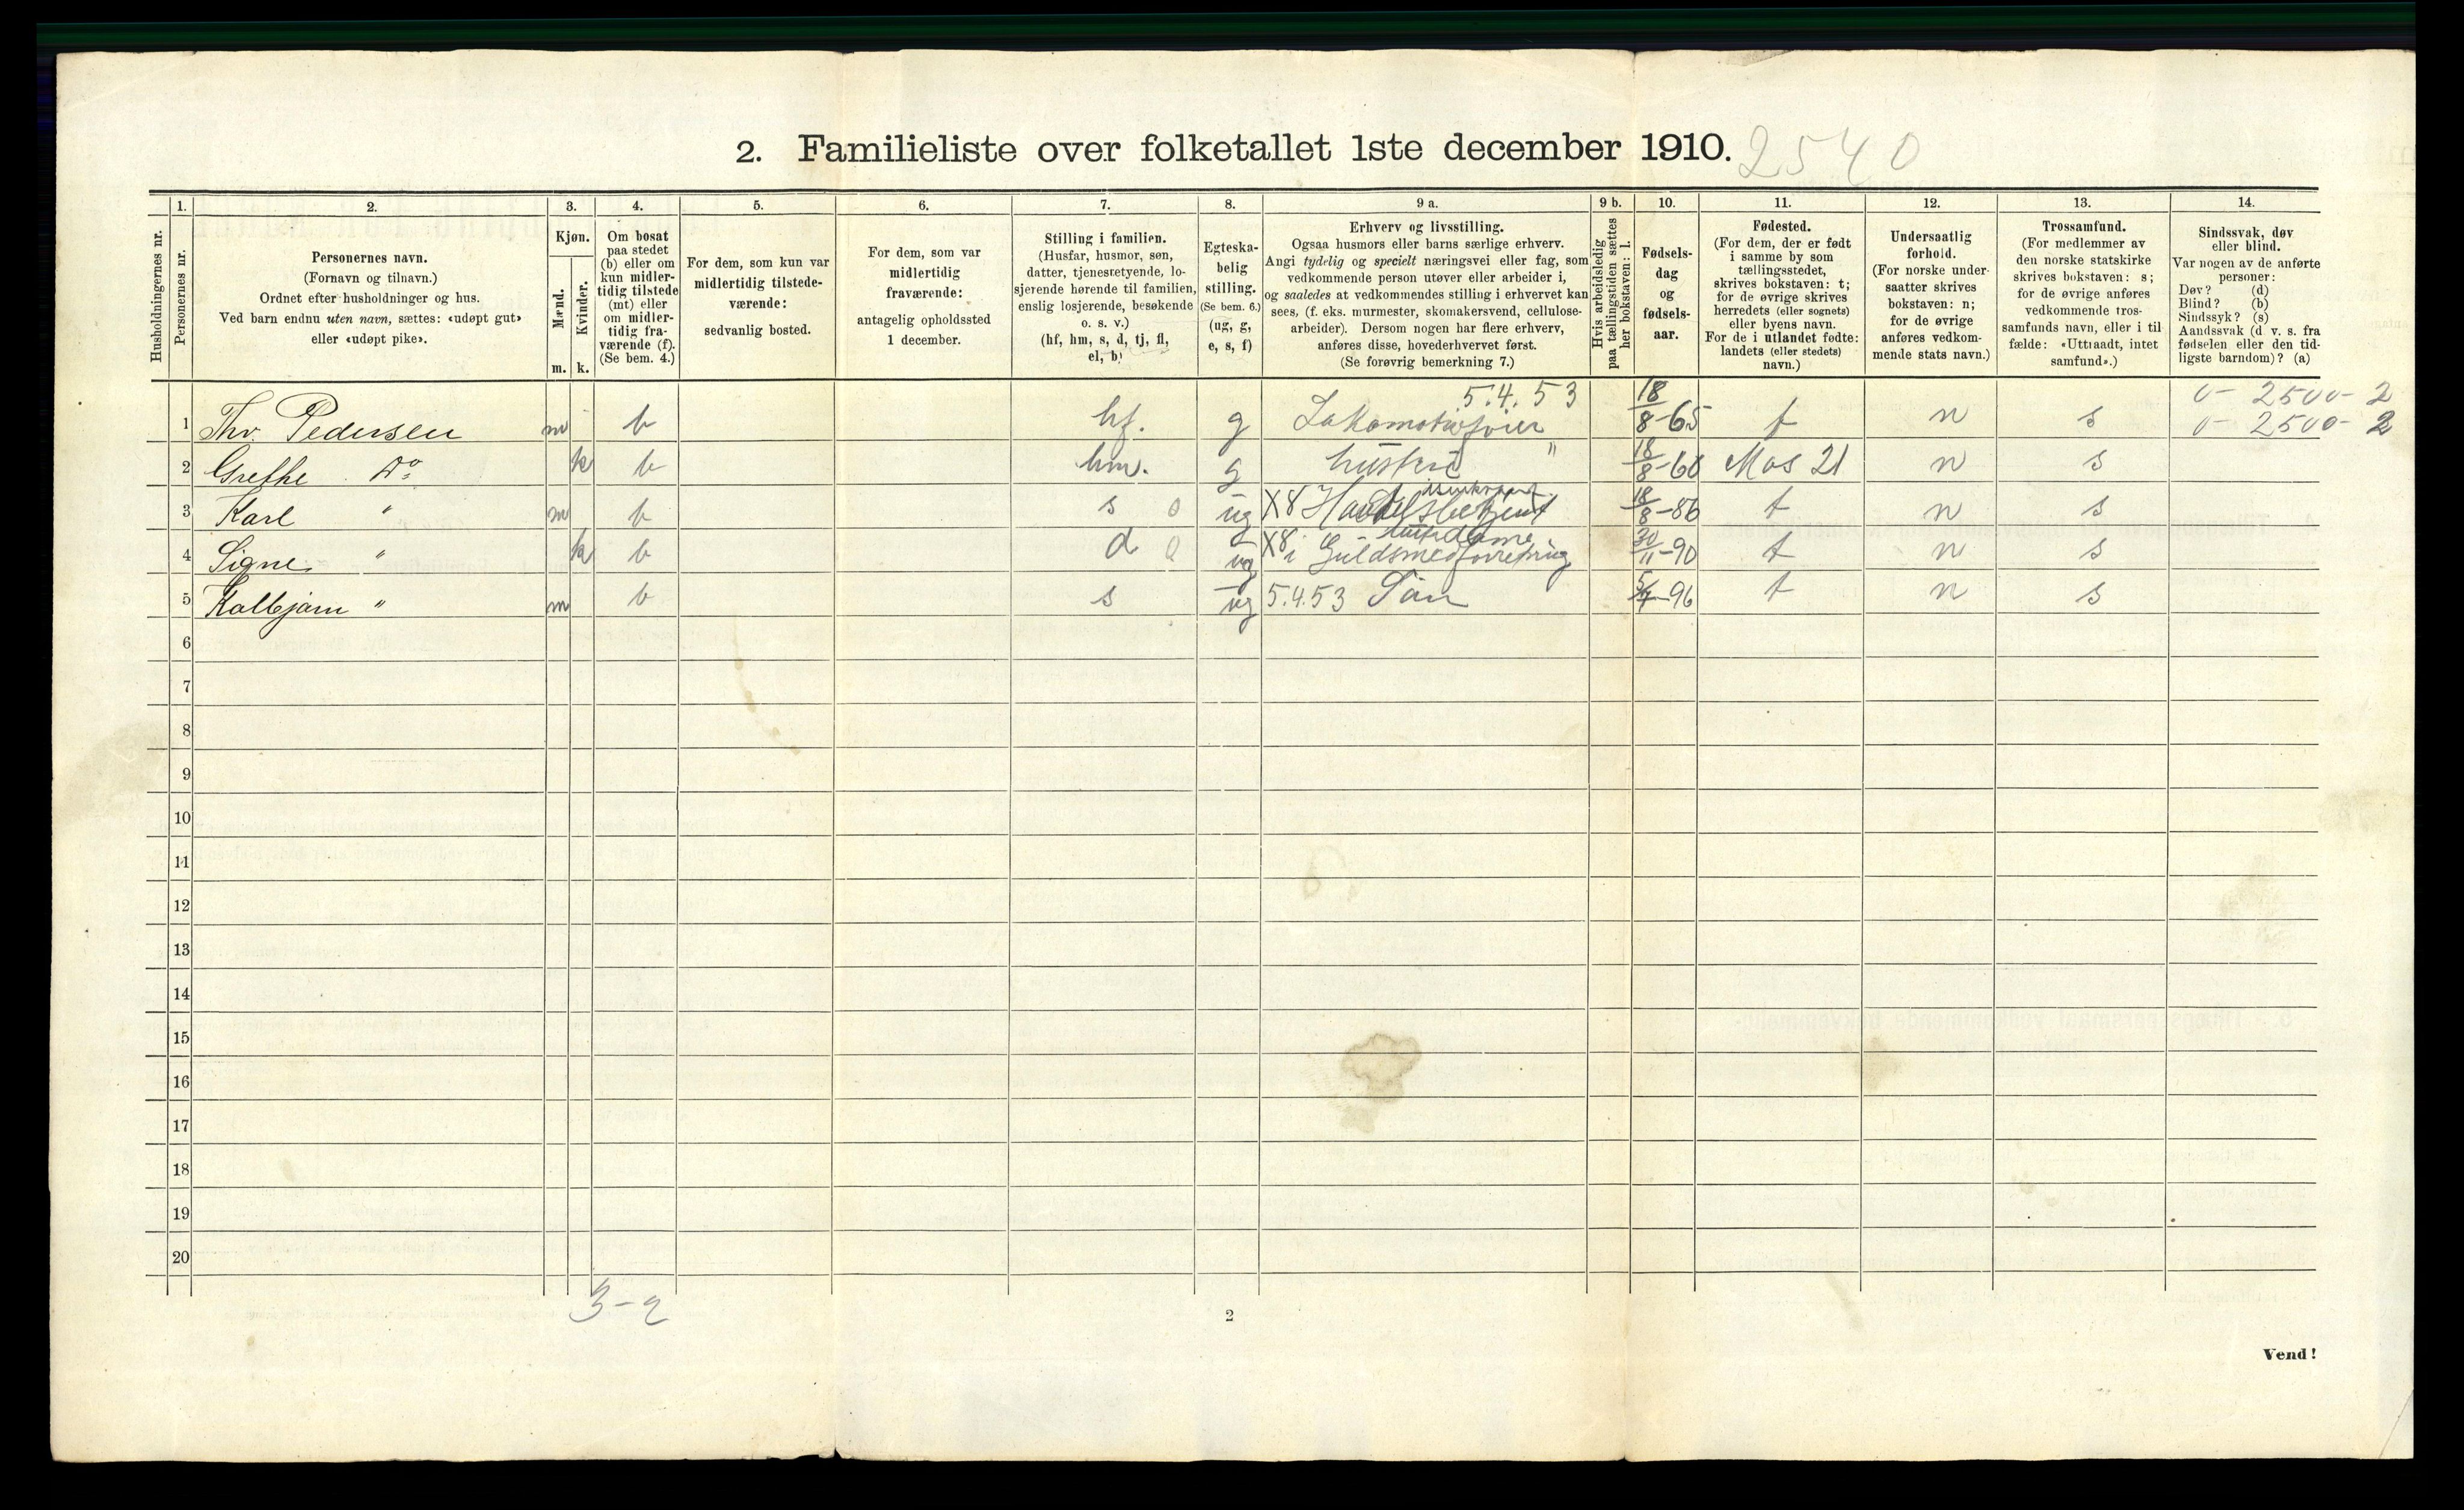 2. Familieliste over folketallet 1ste december 1910. 2540
Husholdningernes nr.
1. Personernes nr.
2.
Personernes navn.
(Fornavn og tilnavn.)
Ordnet efter husholdninger og hus.
Ved barn endnu uten navn, sættes: «udøpt gut»
eller «udøpt pike».
3.
Kjøn.
Mænd. m.
Kvinder. k.
4.
Om bosat
paa stedet
(b) eller om
kun midler-
tidig tilstede
(mt) eller
om midler-
tidig fra-
værende (f).
(Se bem. 4.)
5.
For dem, som kun var
midlertidig tilstede-
værende:
sedvanlig bosted.
6.
For dem, som var
midlertidig
fraværende:
antagelig opholdssted
1 december.
7.
Stilling i familien.
(Husfar, husmor, søn,
datter, tjenestetyende, lo-
sjerende hørende til familien,
enslig losjerende, besøkende
o. s. v.)
(hf, hm, s, d, tj, fl,
el, b)
8.
Egteska-
belig
stilling.
(Se bem. 6.)
(ug, g,
e, s, f)
9 a.
Erhverv og livsstilling.
Ogsaa husmors eller barns særlige erhverv.
Angi tydelig og specielt næringsvei eller fag, som
vedkommende person utøver eller arbeider i,
og saaledes at vedkommendes stilling i erhvervet kan
sees, (f. eks. murmester, skomakersvend, cellulose-
arbeider). Dersom nogen har flere erhverv,
anføres disse, hovederhvervet først.
(Se forøvrig bemerkning 7.)
9 b.
Hvis arbeidsledig
paa tællingstiden sættes
her bokstaven: l.
10.
Fødsels-
dag
og
fødsels-
aar.
11.
Fødested.
(For dem, der er født
i samme by som
tællingsstedet,
skrives bokstaven: t;
for de øvrige skrives
herredets (eller sognets)
eller byens navn.
For de i utlandet fødte:
landets (eller stedets)
navn.)
12.
Undersaatlig
forhold.
(For norske under-
saatter skrives
bokstaven: n;
for de øvrige
anføres vedkom-
mende stats navn.)
13.
Trossamfund.
(For medlemmer av
den norske statskirke
skrives bokstaven: s;
for de øvrige anføres
vedkommende tros-
samfunds navn, eller i til-
fælde: «Uttraadt, intet
samfund».)
14.
Sindssvak, døv
eller blind.
Var nogen av de anførte
personer:
Døv? (d)
Blind? (b)
Sindssyk? (s)
Aandssvak (d. v. s. fra
fødselen eller den tid-
ligste barndom)? (a)
5.4.53 0 - 2500 - 2
1 Thv. Pedersen m b hf. g Lokomotivfører 18/8-65 t n s 0 - 2500 - 2
2 Grethe Do k b hm. g hustru " 18/8-60 Mos 21 n s
3 Karl " m b s 0 ug X8 Handelsbetjent 18/8-86 t n s
4 Signe " k b d 0 ug X8 i Guldsmedforretning 30/11-90 t n s
5 Kolbjørn " m b s ug 5.4.53 Søn 5/7-96 t n s
6
7
8
9
10
11
12
13
14
15
16
17
18
19
20
3-2
2
Vend!